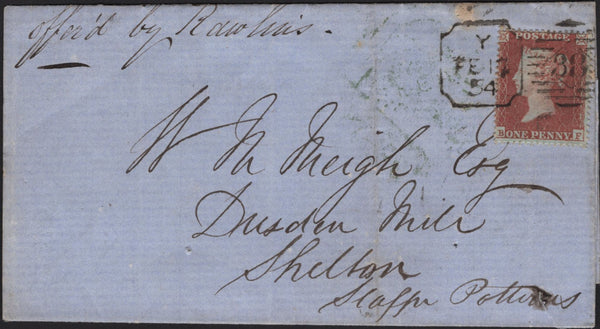 offer'd by Rawlins.
Y
FE 13
54
POSTAGE
38
B F
ONE PENNY
W M Meigh Esq
Dresden Mill
Shelton
Staffs Potteries